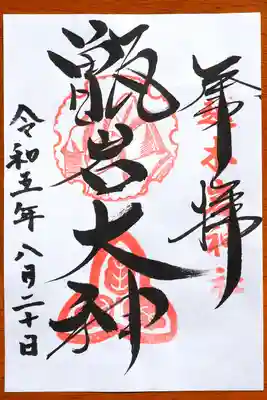 奉拝
甑岩大神
令和五年八月二十日